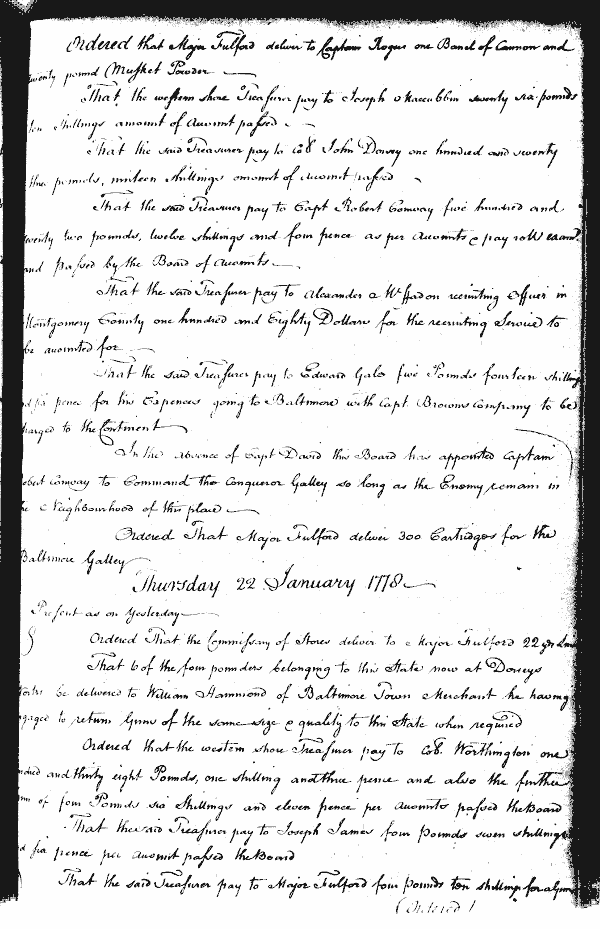 Ordered that Major Fulford deliver to Captain Rogers one Barrel of Cannon and
twenty pound Musket Powder
That the western shore Treasurer pay to Joseph Maccubbin twenty six pounds
ten shillings amount of Account passed
That the said Treasurer pay to Col. John Dorsey one hundred and twenty
three pounds, nineteen shillings amount of Account passed
That the said Treasurer pay to Capt Robert Conway five hundred and
twenty two pounds, twelve shillings and four pence as per Accounts & pay roll examd.
and passed by the Board of Accounts
That the said Treasurer pay to Alexander McFadon recruiting Officer in
Montgomery County one hundred and Eighty Dollars for the recruiting Service to
be accounted for
That the said Treasurer pay to Edward Gale five Pounds fourteen shillings
and six pence for his Expences going to Baltimore with Capt Browns Company to be
charged to the Continent
In the absence of Capt David this Board has appointed Captain
Robert Conway to Command the Conqueror Galley so long as the Enemy remain in
the Neighbourhood of this place
Ordered That Major Fulford deliver 300 Cartridges for the
Baltimore Galley
Thursday 22 January 1778
Present as on Yesterday
Ordered That the Commissary of Stores deliver to Major Fulford 22 yds
That 6 of the four pounders belonging to this State now at Dorseys
be delivered to William Hammond of Baltimore Town Merchant he having
engaged to return Guns of the same size & quality to this State when required
Ordered that the western shore Treasurer pay to Col. Worthington one
hundred and thirty eight Pounds, one shilling and three pence and also the further
sum of four Pounds six Shillings and eleven pence per Accounts passed the Board
That the said Treasurer pay to Joseph James four pounds seven shillings
and six pence per Account passed the Board
That the said Treasurer pay to Major Fulford four pounds ten shillings for a
(Ordered)